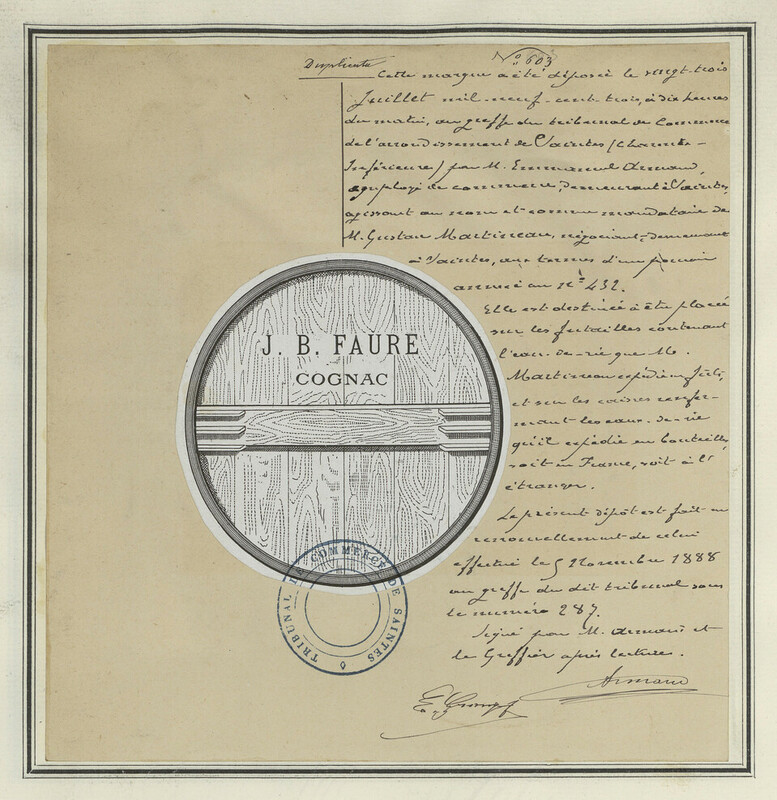 N° 603
Duplicata
Cette marque a été déposée le vingt-trois
Juillet mil-neuf-cent-trois, à dix heures
du matin, au greffe du tribunal de Commerce
de l'arrondissement de Saintes (Charente-
Inférieure) par M. Emmanuel Armand,
employé de commerce, demeurant à Saintes,
agissant au nom et comme mandataire de
M. Gustave Martineau, négociant, demeurant
à Saintes, aux termes d'un pouvoir
annexé au n° 432.
Elle est destinée à être placée
sur les futailles contenant
l'eau-de-vie que M.
Martineau expédie en fûts,
et sur les caisses renfer-
mant les eaux-de-vie
qu'il expédie en bouteilles,
soit en France, soit à l'
étranger.
Le présent dépôt est fait en
renouvellement de celui
effectué le 5 Novembre 1888
au greffe du dit tribunal sous
le numéro 287.
Signé par M. Armand et
le Greffier après lecture.
Armand
J. B. FAURE
COGNAC
TRIBUNAL DE COMMERCE DE SAINTES